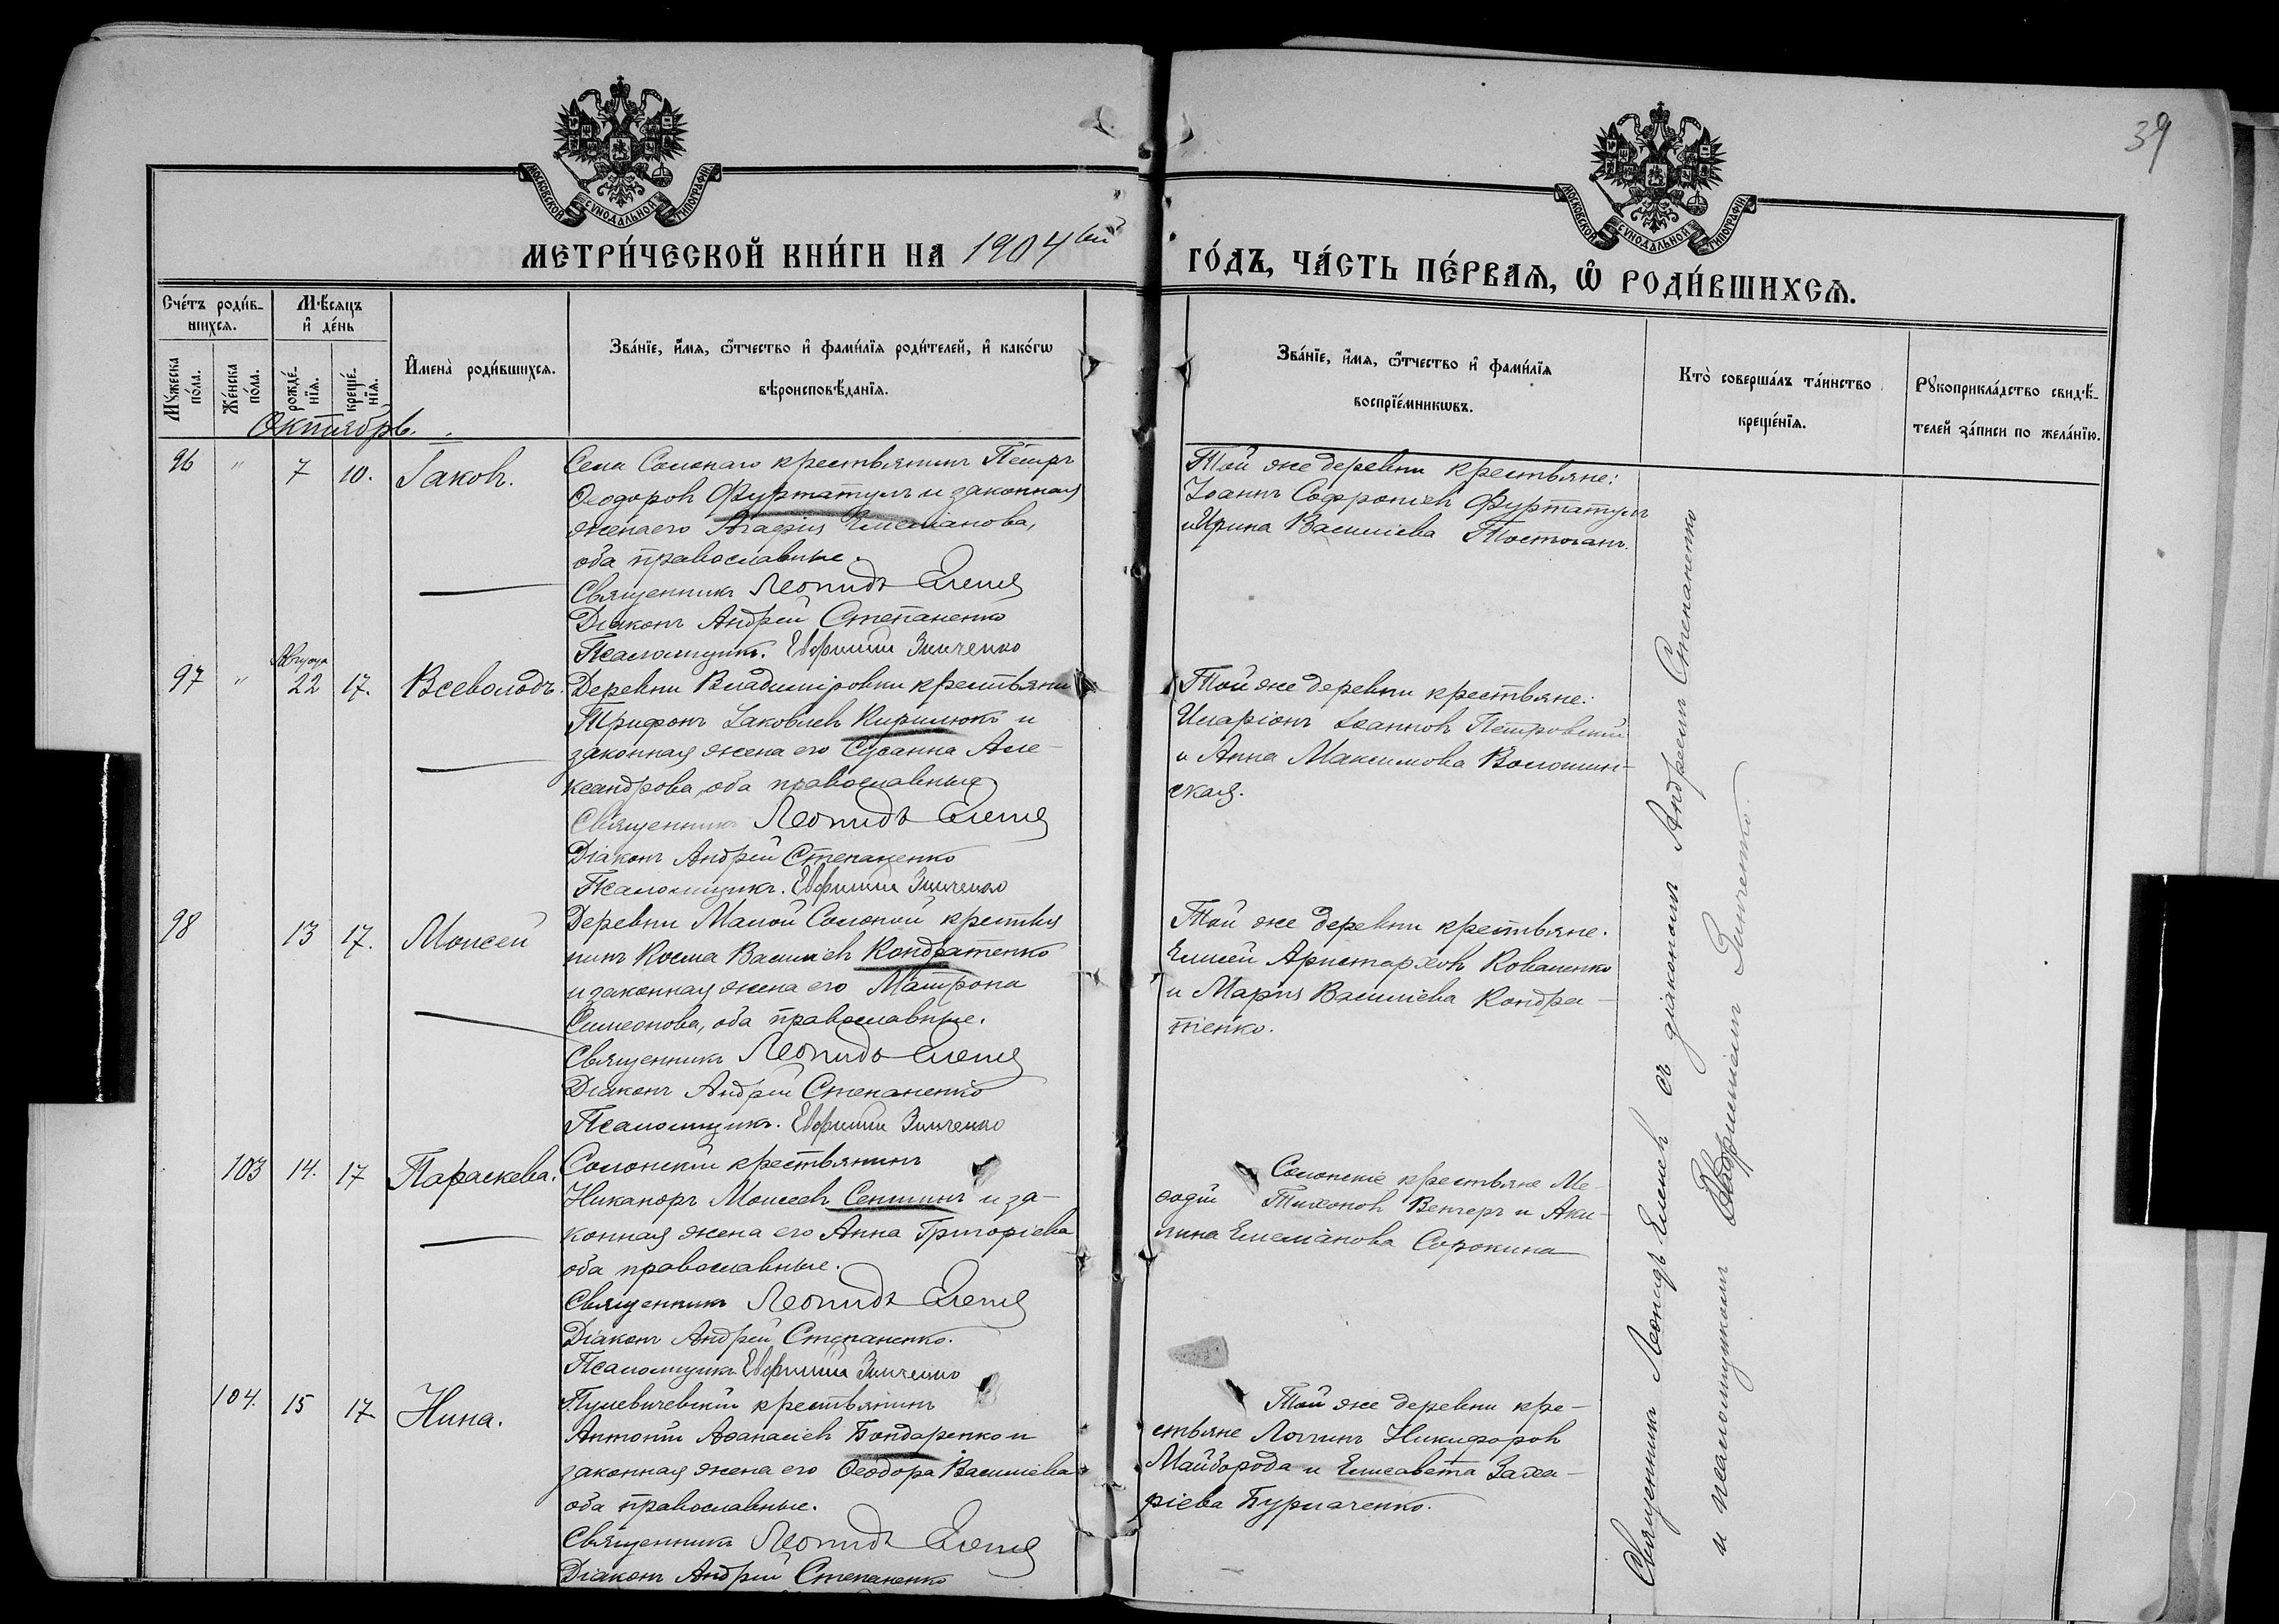 39
МОСКОВСКОЙ СѴНОДАЛЬНОЙ ТИПОГРАФІИ
МОСКОВСКОЙ СѴНОДАЛЬНОЙ ТИПОГРАФІИ
МЕТРИ́ЧЕСКОЙ КНИ́ГИ НА 1904ый
ГО́ДЪ, ЧА́СТЬ ПЕ́РВАѦ, Ѡ҆ РОДИ́ВШИХСѦ.
Сче́тъ роди́в-
шихсѧ.
Мꙋ́жеска по́ла.
Же́нска по́ла.
Мѣ́сѧцъ
и҆ де́нь
рожде́-
нїѧ.
креще́-
нїѧ.
И҆мена̀ роди́вшихсѧ.
Зва́нїе, и҆́мѧ, ѻ҆́тчество и҆ фами́лїѧ роди́телей, и҆ како́гѡ
вѣроисповѣ́данїѧ.
Зва́нїе, и҆́мѧ, ѻ҆́тчество и҆ фами́лїѧ
воспрїе́мникѡвъ.
Кто̀ соверша́лъ та́инство
креще́нїѧ.
Рꙋкоприкла́дство свидѣ́-
телей за́писи по жела́нїю.
Октябрь.
96 " 7 10. Іаковъ.
Села Солонаго крестьянинъ Петръ
Ѳеодоровъ Фуртатулъ и законная
жена его Агафія Емеліанова,
оба православные.
Священникъ Леонидъ Еленев
Діаконъ Андрей Степаненко
Псаломщикъ. Евфимий Зинченко
Той же деревни крестьяне:
Іоаннъ Софроніевъ Фуртатулъ
и Ирина Василіева Постоланъ.
97 " Августа 22 17. Всеволодъ.
Деревни Владиміровки крестьянинъ
Трифонъ Іаковлевъ Кирилюкъ и
законная жена его Сусанна Але-
ксандрова, оба православные
Священникъ Леонидъ Еленев
Діаконъ Андрей Степаненко
Псаломщикъ. Евфимий Зинченко
Той же деревни крестьяне:
Иларіонъ Іоанновъ Петровский
и Анна Максимова Волошин-
ская.
98 13 17. Моисей
Деревни Малой Солоной крестья
нинъ Косма Василіевъ Кондратенко
и законная жена его Матрона
Симеонова, оба православные.
Священникъ Леонидъ Еленев
Діаконъ Андрей Степаненко
Псаломщикъ. Евфимий Зинченко
Той же деревни крестьяне.
Елисей Аристарховъ Коваленко
и Марія Василіева Кондра-
тенко.
103 14. 17 Параскева.
Солонский крестьянинъ
Никаноръ Моисеевъ Сенишинъ и за-
конная жена его Анна Григоріева
оба православные.
Священникъ Леонидъ Еленев
Діаконъ Андрей Степаненко.
Псаломщикъ Евфимий Зинченко
Солонскіе крестьяне Ме-
ѳодій Тихоновъ Венгеръ и Аки-
лина Емеліанова Сорокина
104. 15 17 Нина.
крестьянинъ
Антоній Аѳанасіевъ Бондаренко и
законная жена его Ѳеодора Василіева
оба православные.
Священникъ Леонидъ Еленев
Діаконъ Андрей Степаненко
Той же деревни кре-
стьяне Логгинъ Никифоровъ
Майборода и Елисавета Заха-
ріева Бурлаченко.
Священникъ Леонидъ Еленевъ съ діакономъ Андреемъ Степаненко
и псаломщикомъ Евфиміемъ Зинченко.